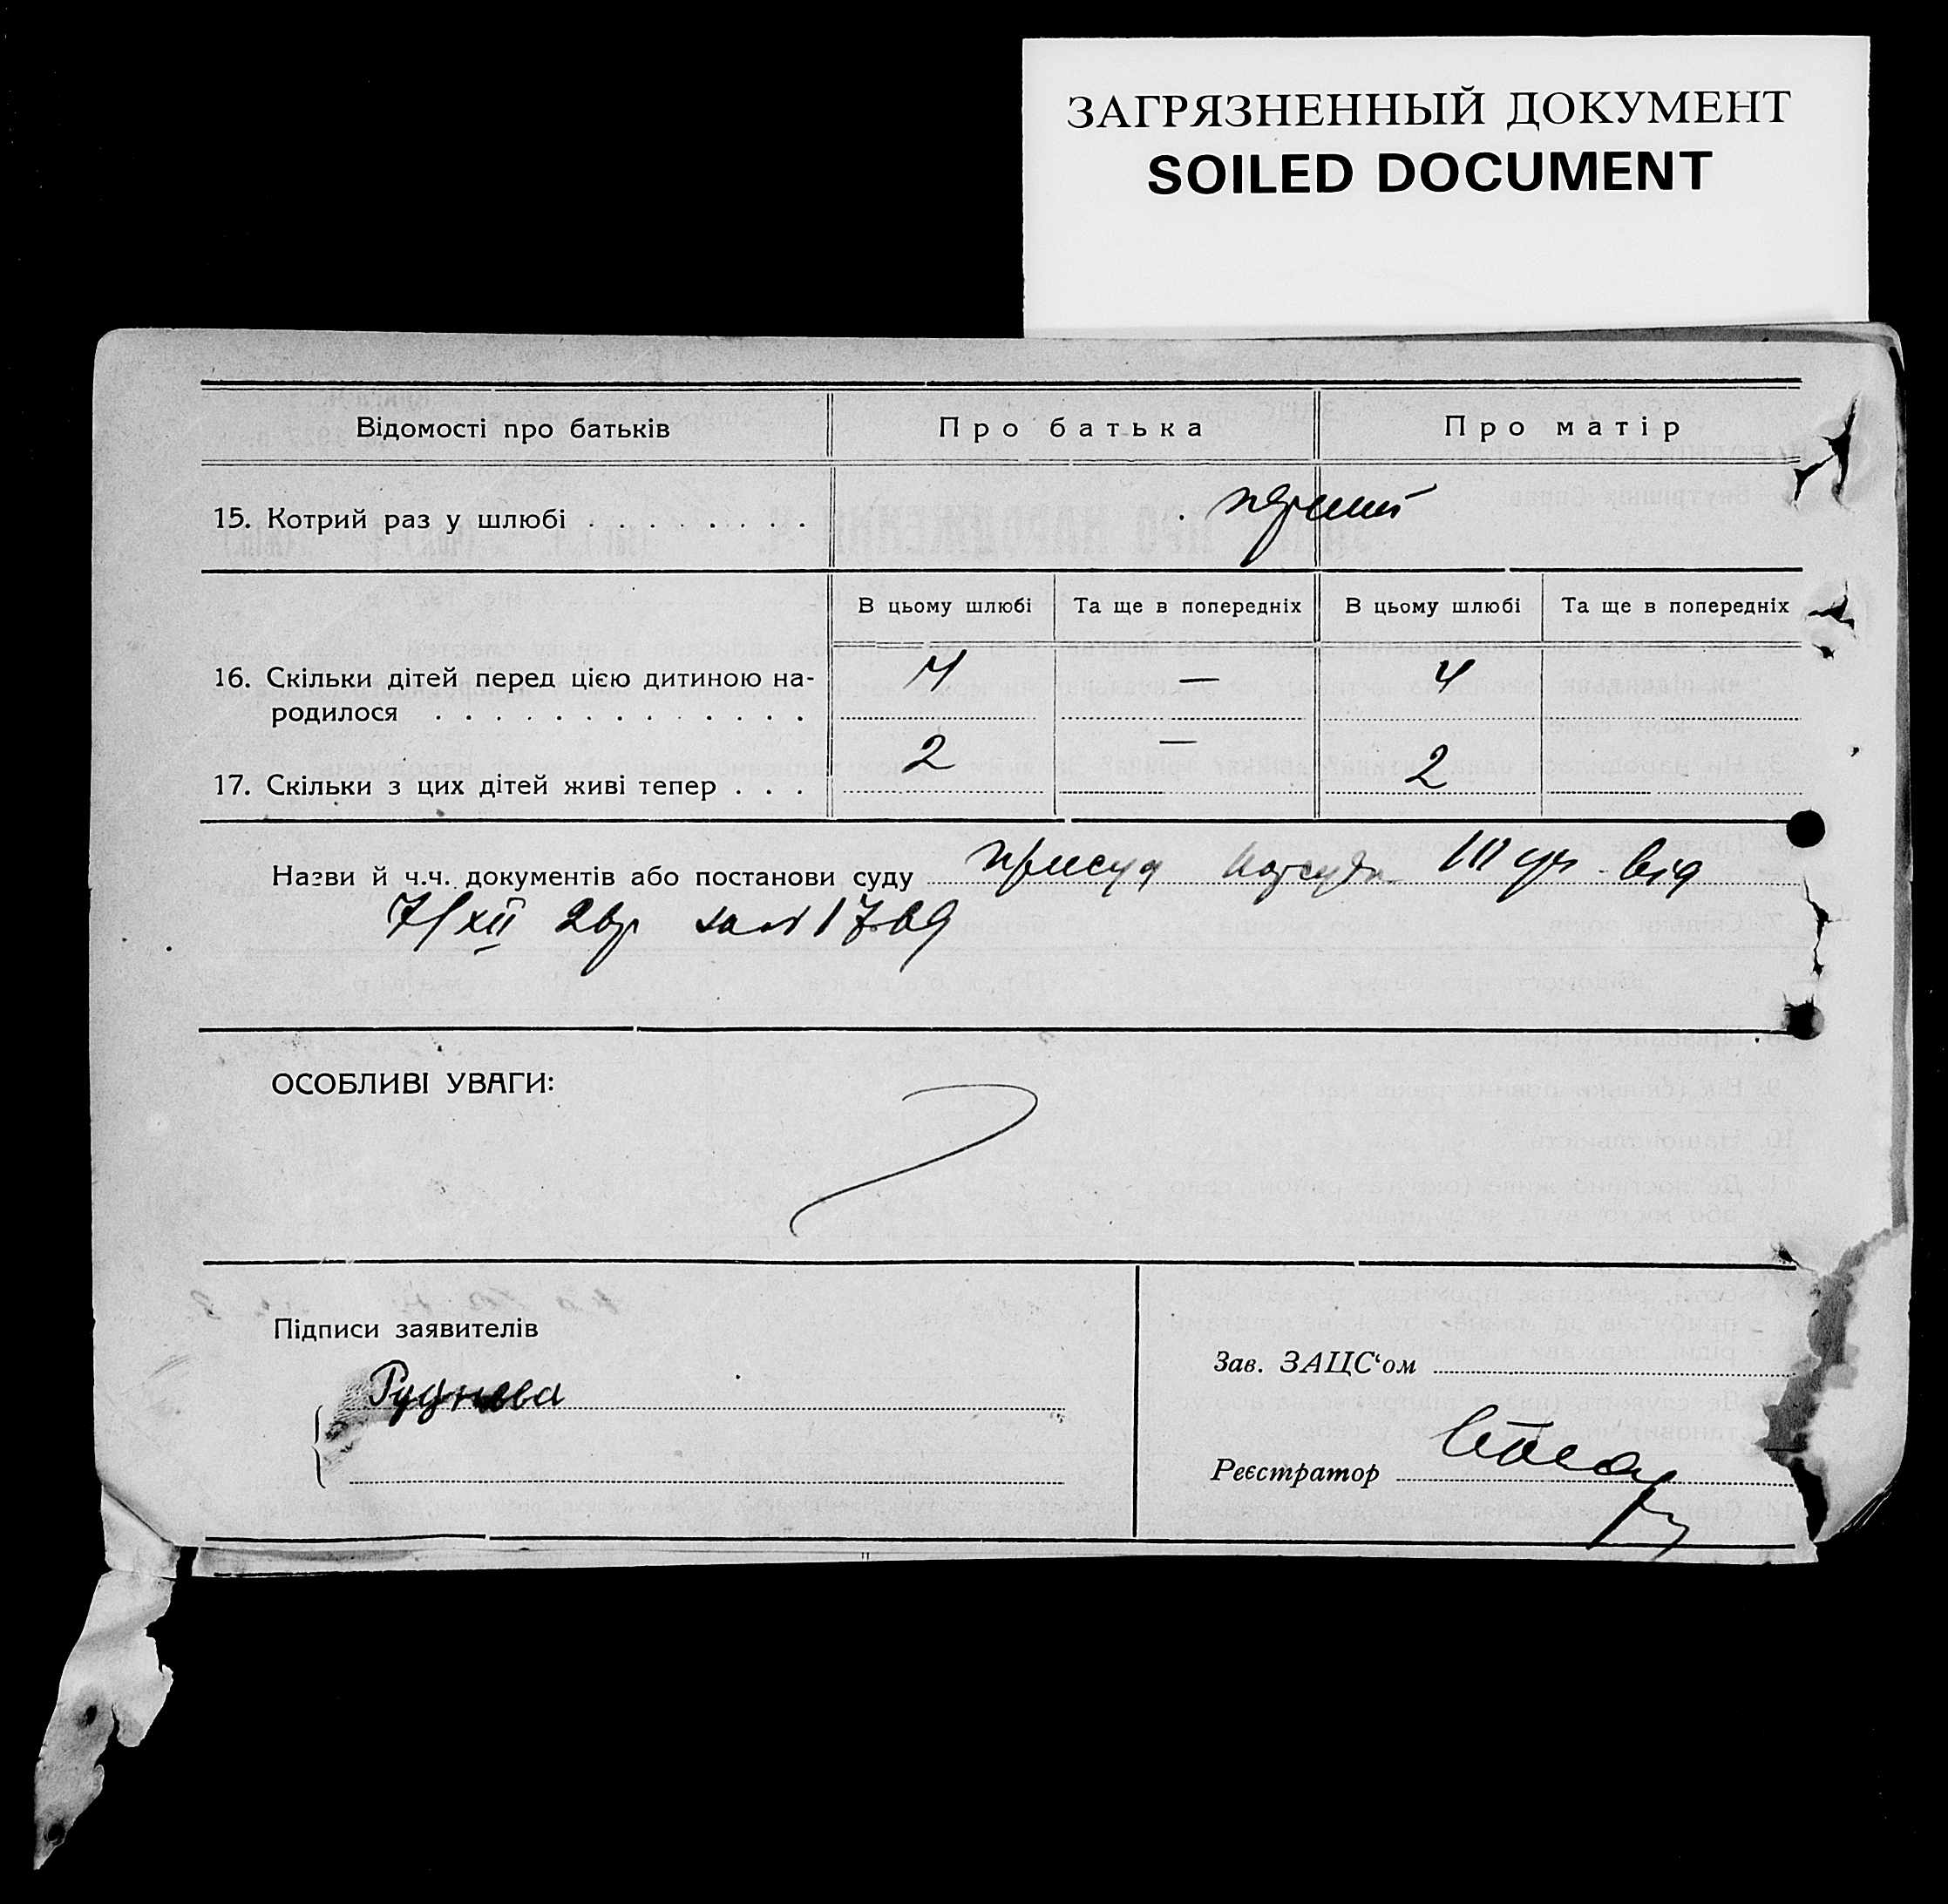 ЗАГРЯЗНЕННЫЙ ДОКУМЕНТ
SOILED DOCUMENT
Відомості про батьків Про батька Про матір
15. Котрий раз у шлюбі . . . . . . . . перший
В цьому шлюбі Та ще в попередніх В цьому шлюбі Та ще в попередніх
16. Скільки дітей перед цією дитиною на-
родилося . . . . . . . . . . . . . 4 — 4
17. Скільки з цих дітей живі тепер . . . 2 — 2
Назви й ч.ч. документів або постанови суду присуд нарсуда III від
7/XII за № 1769
ОСОБЛИВІ УВАГИ:
Підписи заявителів
Руднєва
Зав. ЗАЦС‘ом
Реєстратор